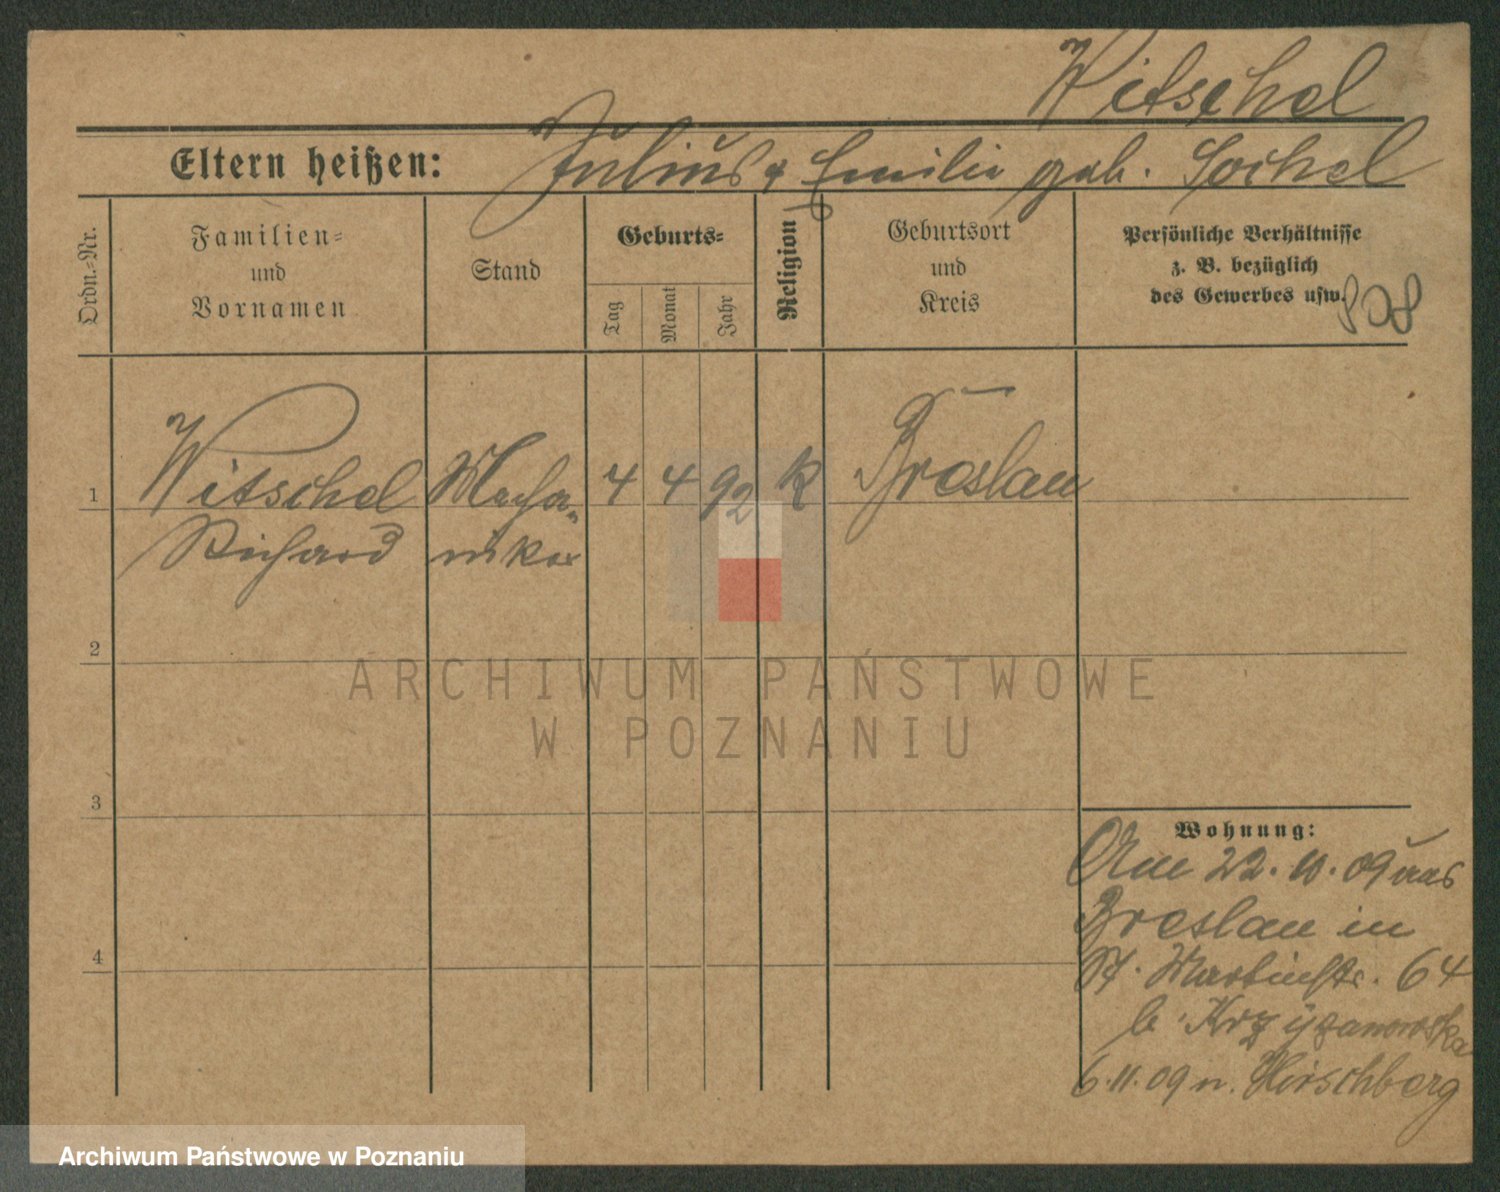 Witschel
Eltern heißen: Julius & Emilie geb. Sochel
Ordn.-Nr.
Familien-
und
Vornamen
Stand
Geburts-
Tag
Monat
Jahr
Religion
Geburtsort
und
Kreis
Persönliche Verhältnisse
z. B. bezüglich
des Gewerbes usw.
1
Witschel Mecha- 4 4 92 k Breslau
Richard niker
2
3
4
Wohnung:
Am 22. 10. 09 aus
Breslau in
St. Martinstr. 64
b. Krzyżanowska
6.11.09 n. Hirschberg
ARCHIWUM PAŃSTWOWE
W POZNANIU
Archiwum Państwowe w Poznaniu